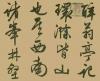 醉翁亭记
环滁皆山
也其西南
诸峰林壑